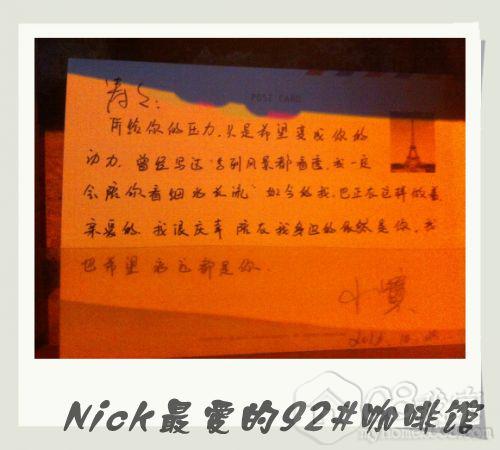 POST CARD
所给你的压力，只是希望变成你的
动力. 曾经写过“等到风景都看透，我一定
会陪你看细水长流” 如今的我，已正在这样做着
亲爱的，我很庆幸 陪在我身边的依然是你，我
也希望 永远都是你.
小寶
Nick最爱的92#咖啡馆